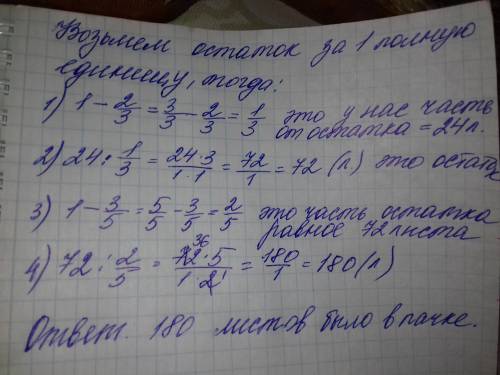 Возьмем остаток за 1 полную
единицу, тогда:
1) 1 - 2/3 = 3/3 - 2/3 = 1/3 это у нас часть
от остатка = 24 л.
2) 24 : 1/3 = 24·3/1·1 = 72/1 = 72 (л) это остаток
3) 1 - 3/5 = 5/5 - 3/5 = 2/5 это часть остатка
равное 72 листа
36
4) 72 : 2/5 = 72·5/1·2 1 = 180/1 = 180 (л)
Ответ. 180 листов было в пачке.